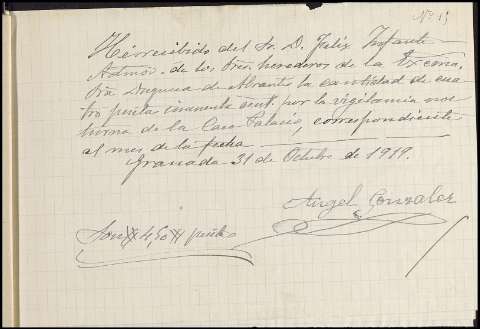 Nº 15
He recibido del Sr. D. Felix Infante
Admor. de los Sres. herederos de la Excma.
Sra. Duquesa de Abrantes la cantidad de cua
tro pesetas cincuenta cent. por la vigilancia noc
turna de la Casa Palacio, correspondiente
al mes de la fecha
Granada 31 de Octubre de 1919.
Angel Gonzalez
Son # 4,50 # pesetas